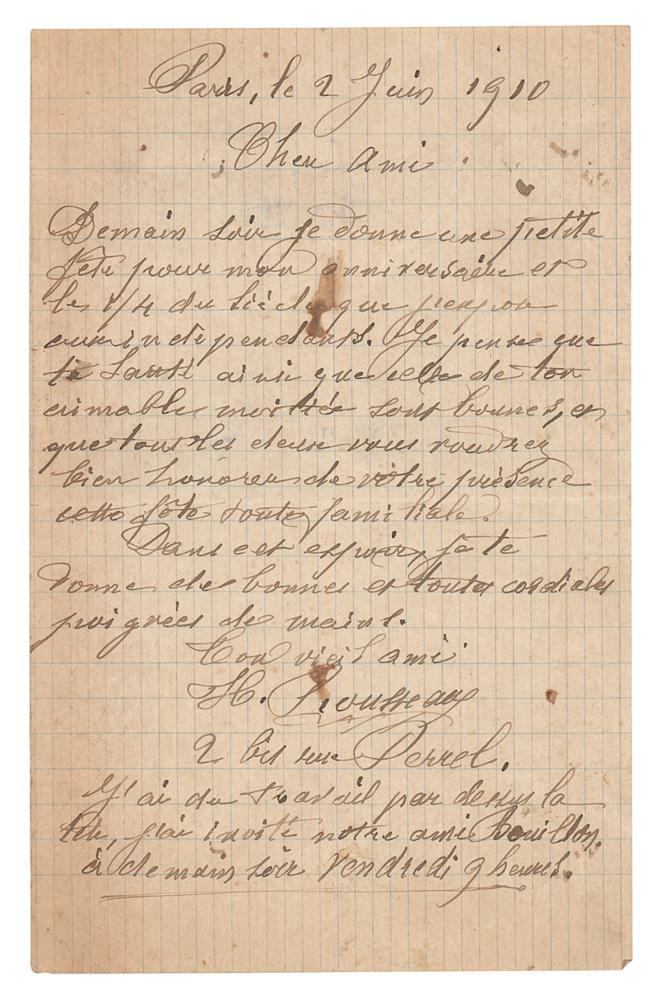 Paris, le 2 Juin 1910
Cher Ami
Demain soir je donne une petite
fête pour mon anniversaire et
les 1/4 du siècle que j'expose
aux indépendants. Je pense que
ta santé ainsi que celle de ton
aimable moitié sont bonnes, et
que tous les deux vous voudrez
bien honorer de votre présence
cette fête toute familiale.
Dans cet espoir, je te
donne de bonnes et toutes cordiales
poignées de mains.
Ton vieil ami
H. Rousseau
2 bis rue Perrel.
J'ai du travail par dessus la
tête, j'ai invité notre ami Bouillon.
à demain soir vendredi 9 heures.